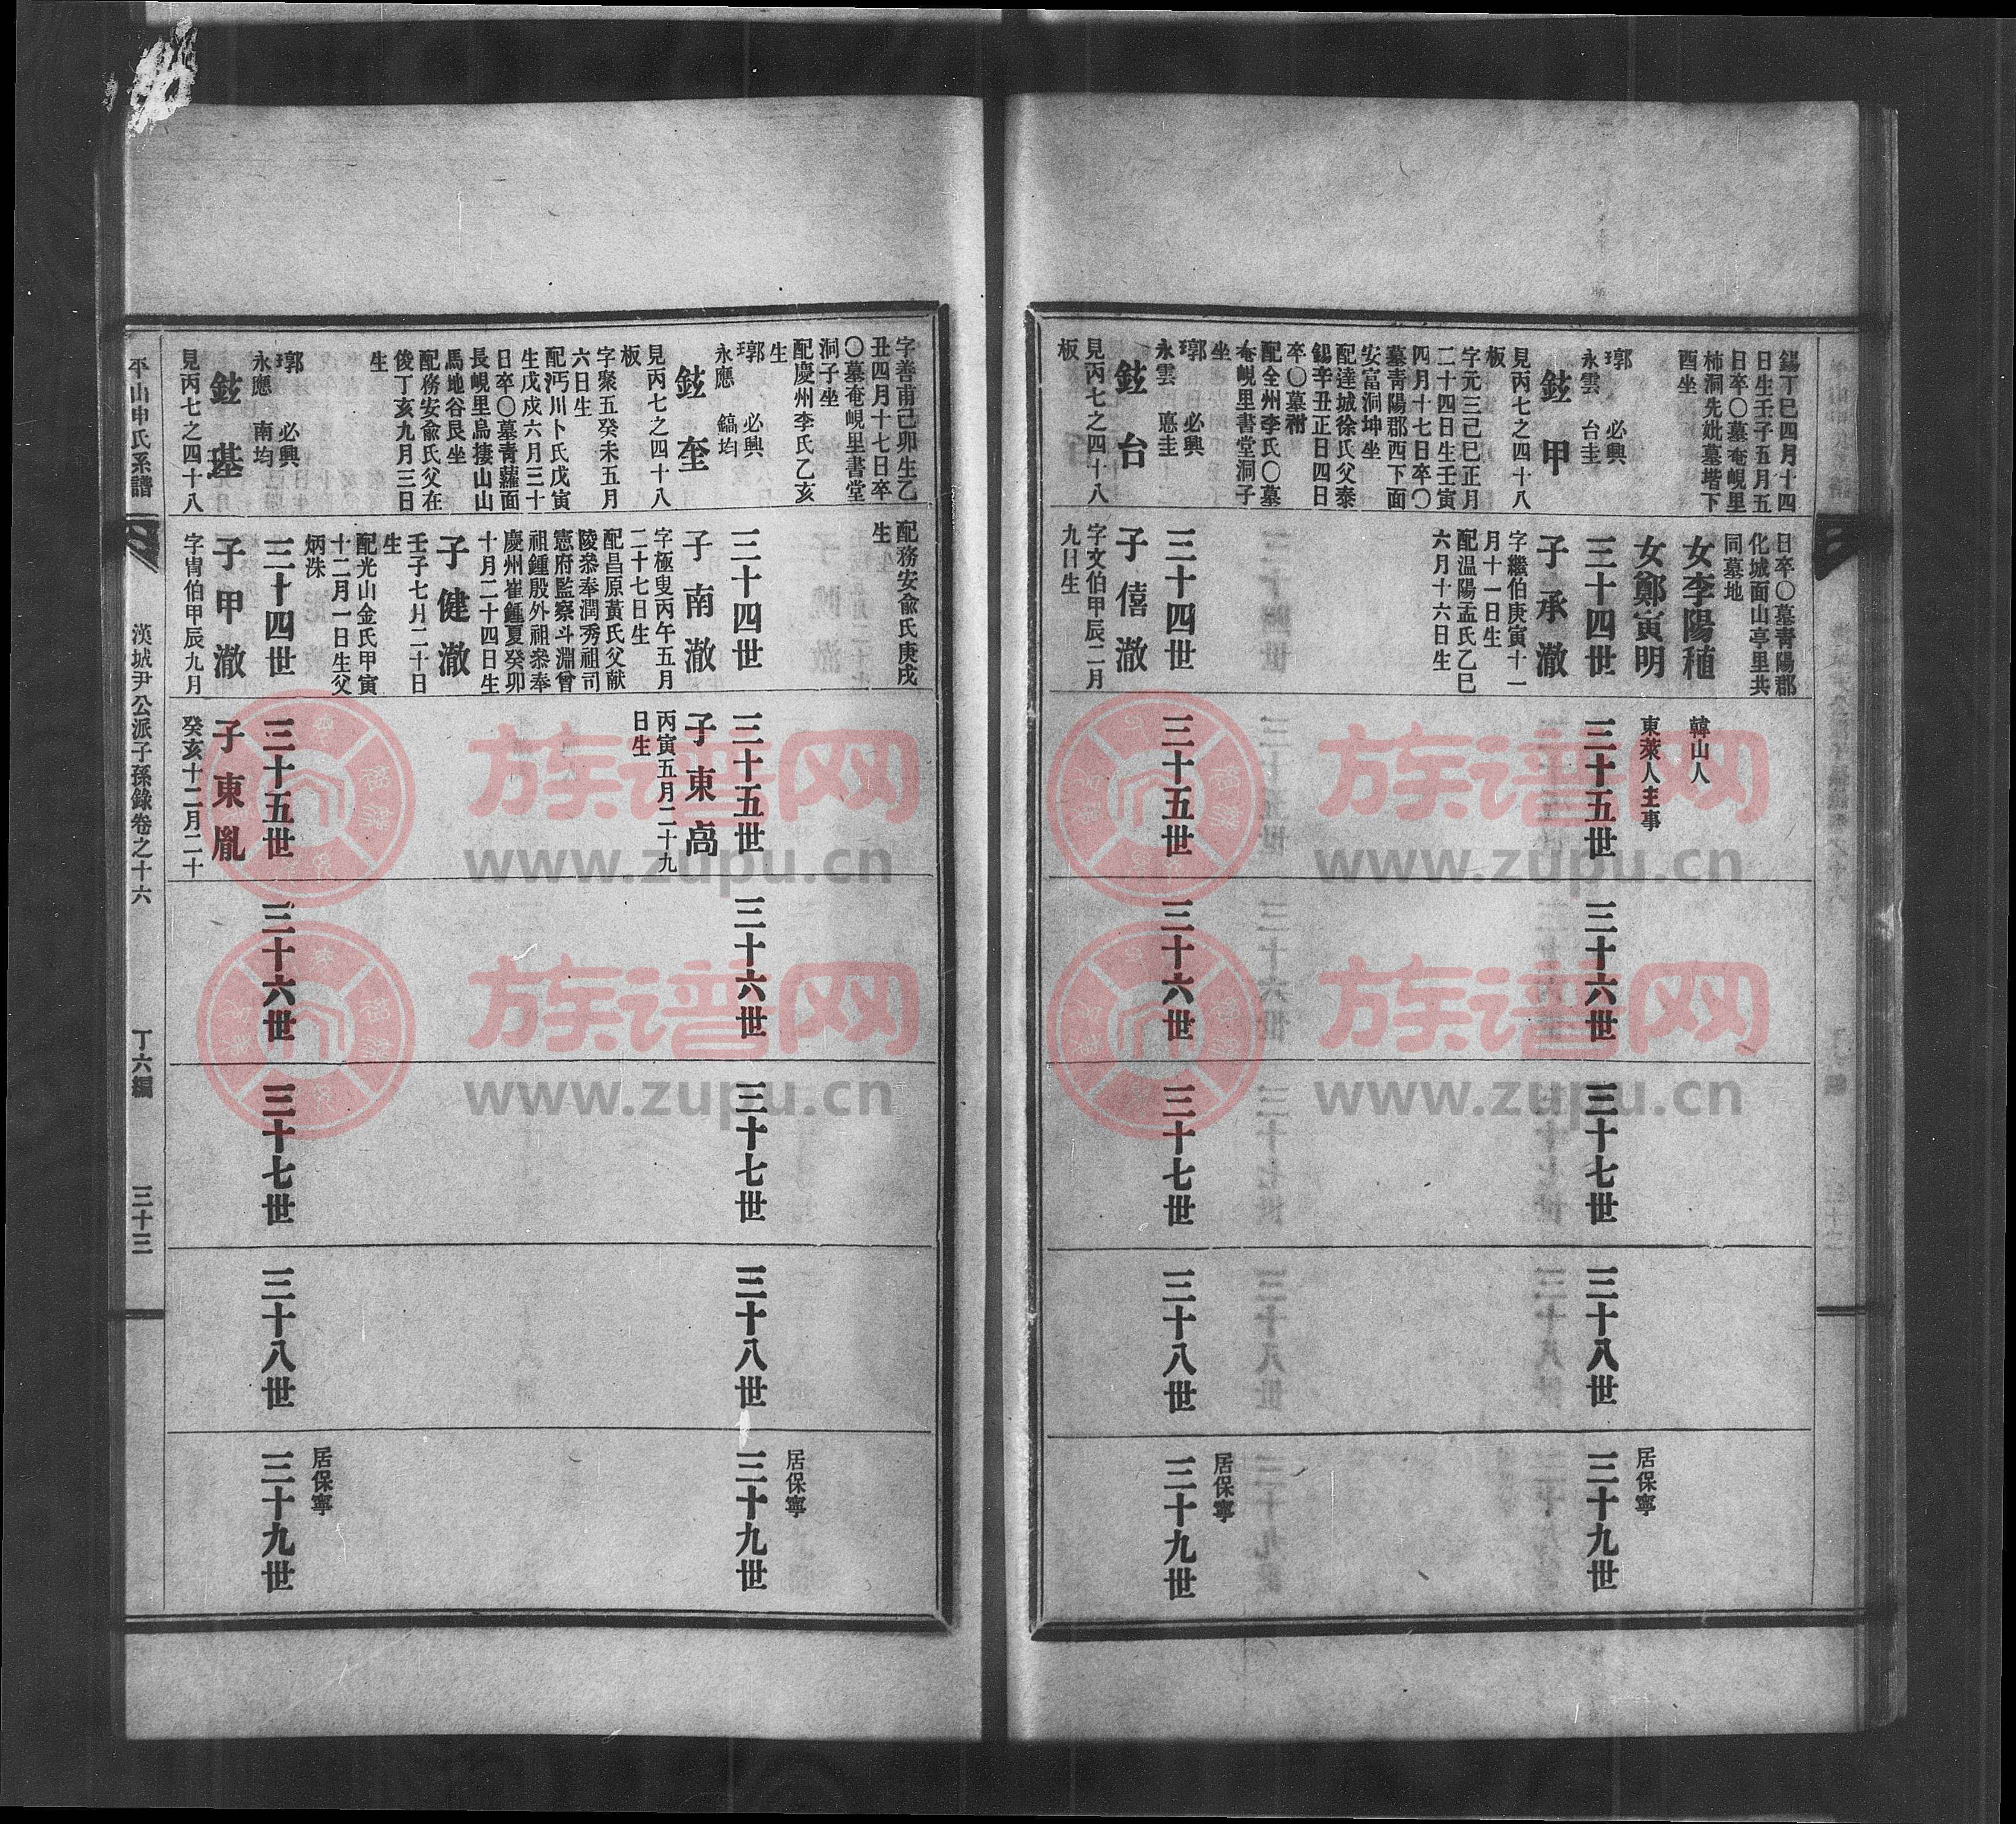 錫丁巳四月十四
日生壬子五月五
日卒〇墓奄峴里
柿洞先妣墓堦下
酉坐
日卒〇墓靑陽郡
化城面山亭里共
同墓地
女李陽稙
韓山人
女鄭寅明
東萊人主事
𤩝 必興
永雲 台圭
鉉甲
見丙七之四十八
板
字元三己巳正月
二十四日生壬寅
四月十七日卒〇
墓靑陽郡西下面
安富洞坤坐
配達城徐氏父泰
錫辛丑正日四日
卒〇墓祔
配全州李氏〇墓
奄峴里書堂洞子
坐
三十四世
子承澈
字繼伯庚寅十一
月十一日生
配温陽孟氏乙巳
六月十六日生
三十五世
三十六世
三十七世
三十八世
三十九世
居保寧
𤩝 必興
永雲 悳圭
鉉台
見丙七之四十八
板
三十四世
子僖澈
字文伯甲辰二月
九日生
三十五世
三十六世
三十七世
三十八世
三十九世
居保寧
字善甫己卯生乙
丑四月十七日卒
〇墓奄峴里書堂
洞子坐
配慶州李氏乙亥
生
配務安兪氏庚戌
生
𤩝 必興
永應 鎬均
鉉奎
見丙七之四十八
板
字聚五癸未五月
六日生
配沔川卜氏戊寅
生戊戌六月三十
日卒〇墓靑蘿面
長峴里烏棲山山
馬地谷艮坐
配務安兪氏父在
俊丁亥九月三日
生
三十四世
子南澈
字極叟丙午五月
二十七日生
配昌原黃氏父献
陵叅奉潤秀祖司
憲府監察斗淵曾
祖鍾殷外祖叅奉
慶州崔鍾夏癸卯
十月二十四日生
子健澈
壬子七月二十日
生
配光山金氏甲寅
十二月一日生父
炳洙
三十五世
子東高
丙寅五月二十九
日生
三十六世
三十七世
三十八世
三十九世
居保寧
𤩝 必興
永應 南均
鉉基
見丙七之四十八
三十四世
子甲澈
字冑伯甲辰九月
三十五世
子東胤
癸亥十二月二十
三十六世
三十七世
三十八世
三十九世
居保寧
平山申氏系譜
漢城尹公派子孫錄卷之十六
丁六編
三十三
族谱网
www.zupu.cn
族谱网
www.zupu.cn
族谱网
www.zupu.cn
族谱网
www.zupu.cn